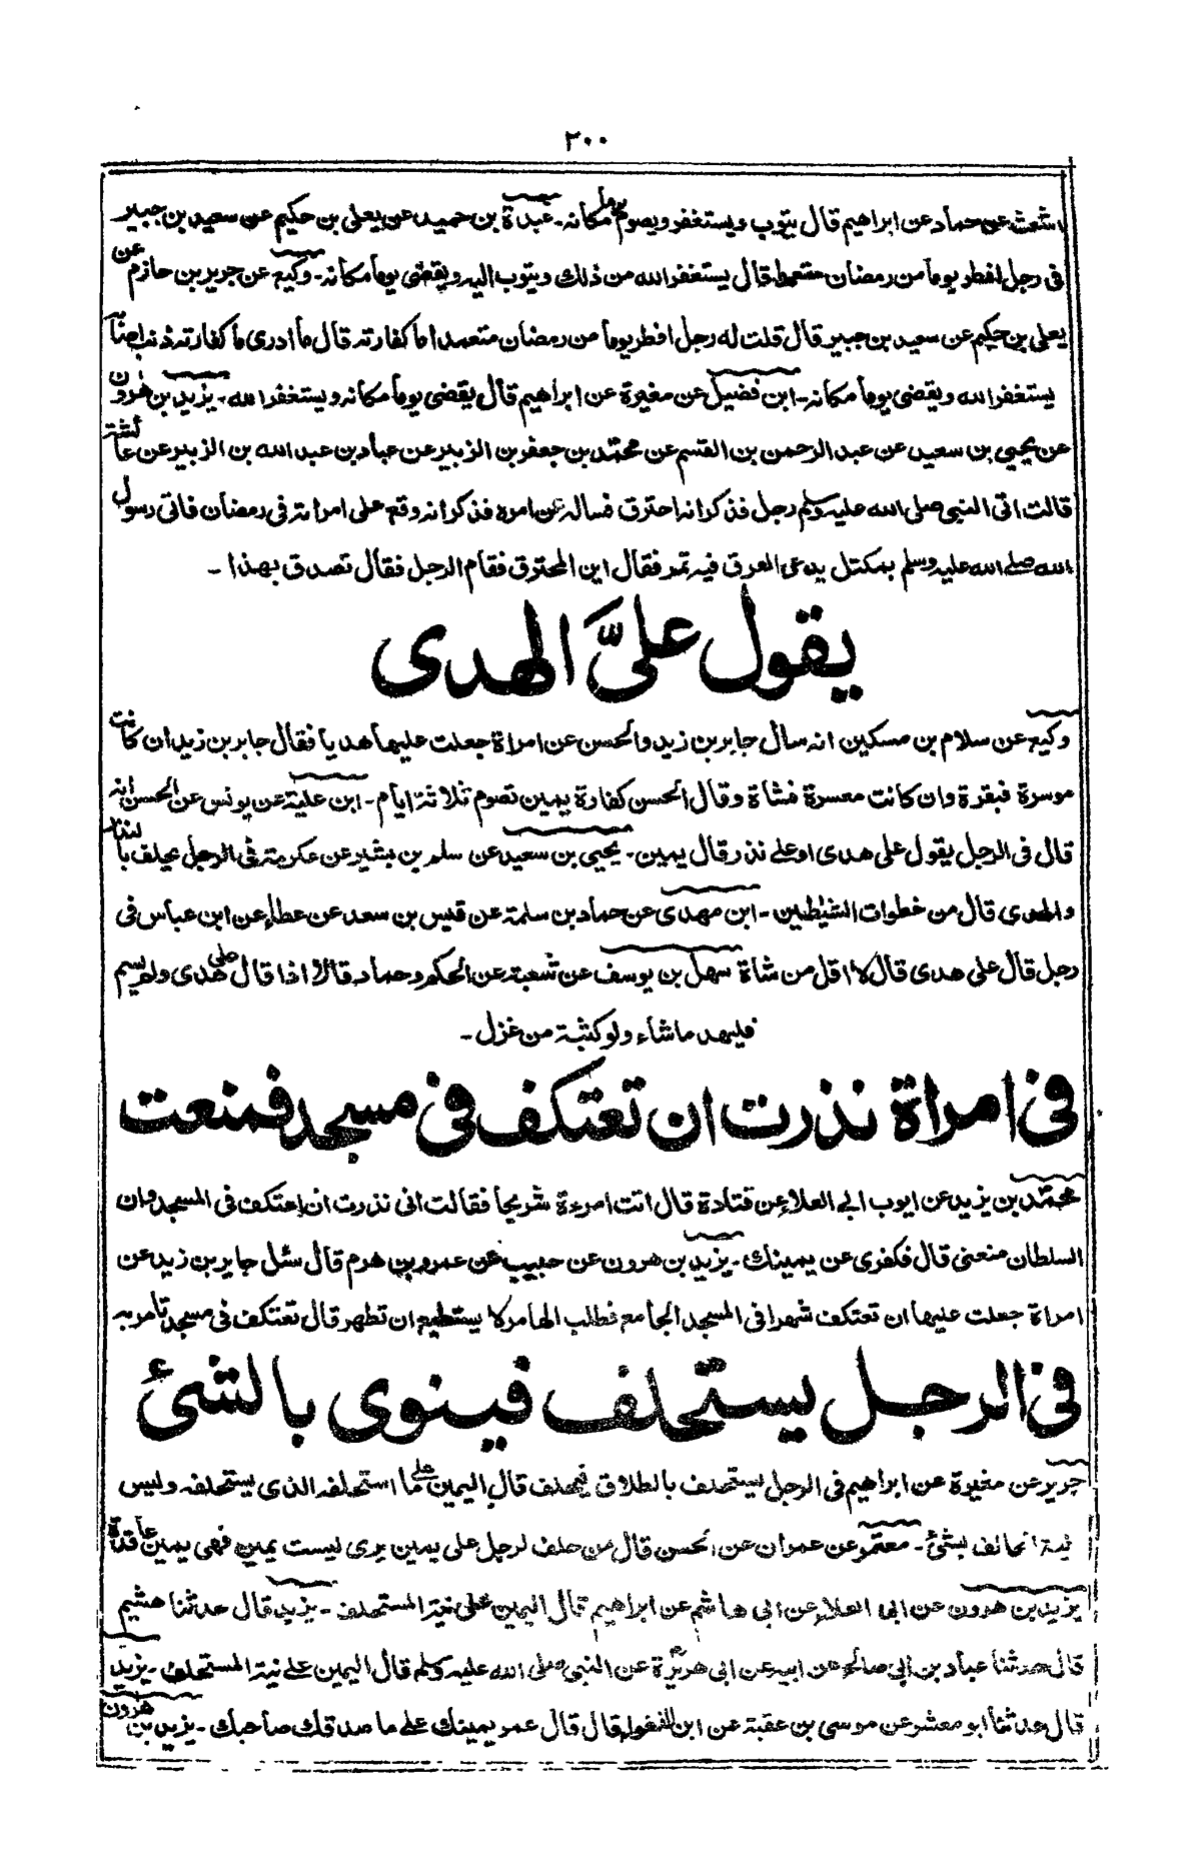 ٢٠٠
اشعث عن حماد عن ابراهيم قال يتوب ويستغفر ويصوم يوما مكانه ـ عبدة بن حميد عن يعلى بن حكيم عن سعيد بن جبير
فى رجل افطر يوما من رمضان متعمدا قال يستغفر الله من ذلك ويتوب اليه ويقضى يوما مكانه ـ وكيع عن جرير بن حازم عن
يعلى بن حكيم عن سعيد بن جبير قال قلت له رجل افطر يوما من رمضان متعمدا ما كفارته قال ما ادرى ما كفارته ذنب اصابه
يستغفر الله ويقضى يوما مكانه ـ ابن فضيل عن مغيرة عن ابراهيم قال يقضى يوما مكانه ويستغفر الله ـ يزيد بن هرون
عن يحيى بن سعيد عن عبد الرحمن بن القسم عن محمد بن جعفر بن الزبير عن عباد بن عبد الله بن الزبير عن عائشة
قالت اتى النبى صلى الله عليه وسلم رجل فذكر انه احترق فساله عن امره فذكر انه وقع على امراته فى رمضان فاتى رسول
الله صلى الله عليه وسلم بمكتل يدعى العرق فيه تمر فقال اين المحترق فقام الرجل فقال تصدق بهذا ـ
يقول علىَّ الهدى
وكيع عن سلام بن مسكين انه سال جابر بن زيد والحسن عن امراة جعلت عليها هديا فقال جابر بن زيد ان كانت
موسرة فبقرة وان كانت معسرة فشاة وقال الحسن كفارة يمين تصوم ثلاثة ايام ـ ابن علية عن يونس عن الحسن انه
قال فى الرجل يقول على هدى او على نذر قال يمين ـ يحيى بن سعيد عن سلم بن بشير عن عكرمة فى الرجل يحلف بالنذر
والهدى قال من خطوات الشيطين ـ ابن مهدى عن حماد بن سلمة عن قيس بن سعد عن عطاء عن ابن عباس فى
رجل قال على هدى قال لا اقل من شاة سهل بن يوسف عن شعبة عن الحكم وحماد قالا اذا قال على هدى ولم يسم
فليهد ما شاء ولو كبة من غزل ـ
فى امراة نذرت ان تعتكف فى مسجد فمنعت
محمد بن يزيد عن ايوب ابى العلاء عن قتادة قال اتت امرءة شريحا فقالت انى نذرت ان اعتكف فى المسجد وان
السلطان منعنى قال فكفرى عن يمينك ـ يزيد بن هرون عن حبيب عن عمرو بن هرم قال سئل جابر بن زيد عن
امراة جعلت عليها ان تعتكف شهرا فى المسجد الجامع فطلب الهامر لا يستطيع ان تطهر قال تعتكف فى مسجد تامر به
فى الرجل يستحلف فينوى بالشئ
جرير عن مغيرة عن ابراهيم فى الرجل يستحلف بالطلاق فيحلف قال اليمين على ما استحلفه الذى يستحلفه وليس
نية الحالف بشئ ـ معتمر عن عمران عن الحسن قال من حلف لرجل على يمين يرى ليست يمين فهى يمين عاقدة
يزيد بن هرون عن ابى العلاء عن ابى هاشم عن ابراهيم قال اليمين على نية المستحلف ـ يزيد قال حدثنا هشيم
قال حدثنا عباد بن ابى صالح عن ابيه عن ابى هريرة عن النبى صلى الله عليه وسلم قال اليمين على نية المستحلف ـ يزيد
قال حدثنا ابو معشر عن موسى بن عقبة عن ابن قال قال عمر يمينك على ما صدقك صاحبك ـ يزيد بن هرون